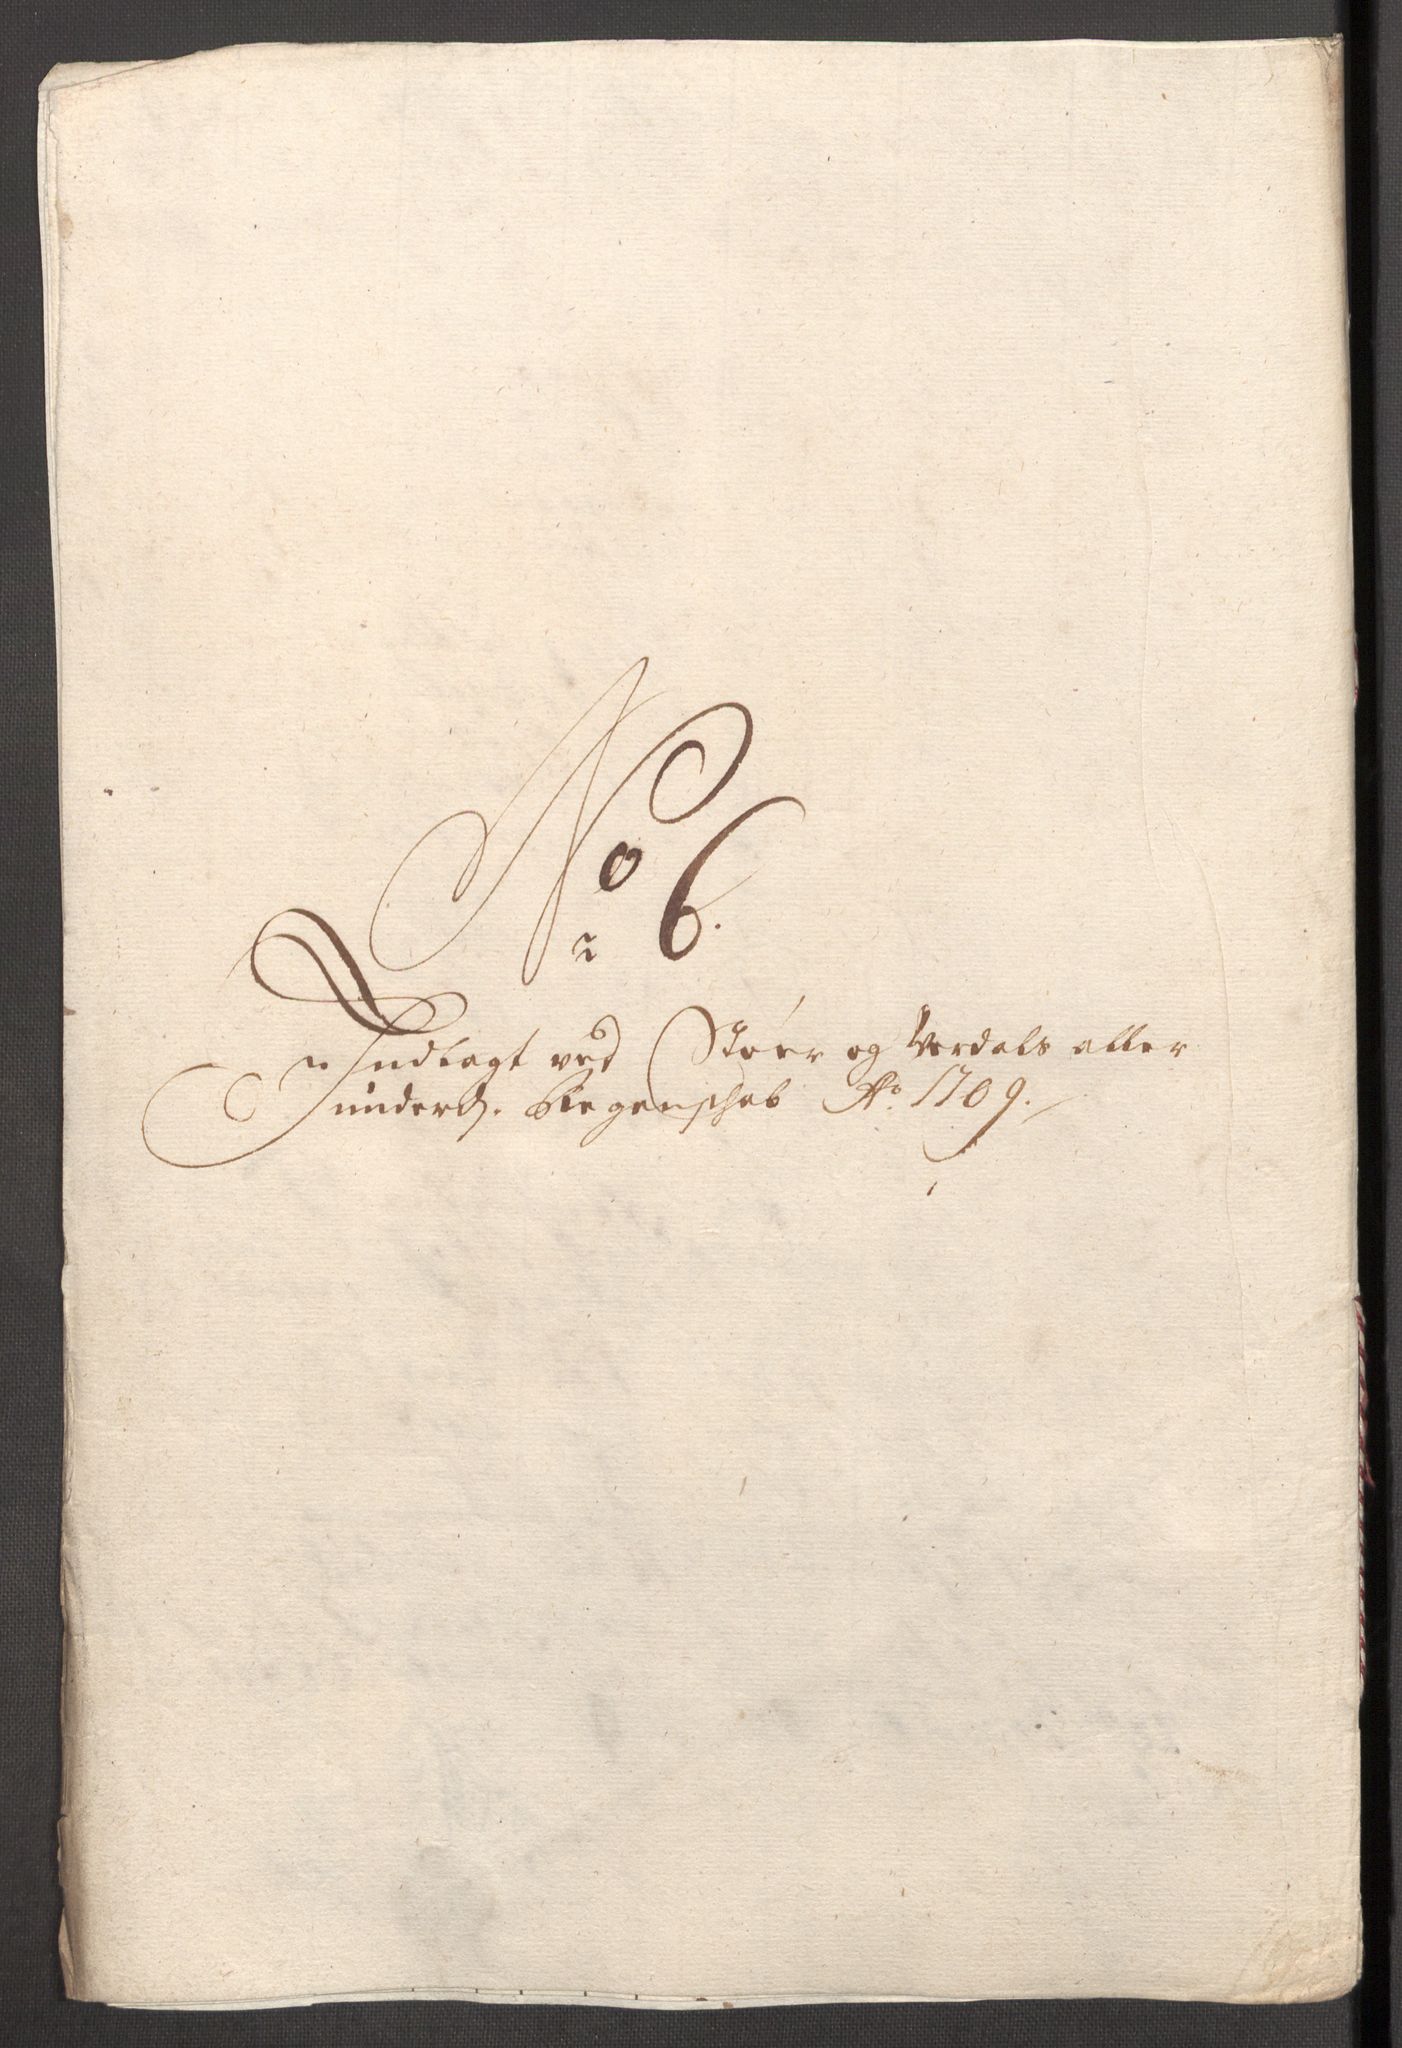 No 6.
Indlagt ved Støer og Verdals aller
underd. Regenschab Ao. 1709.